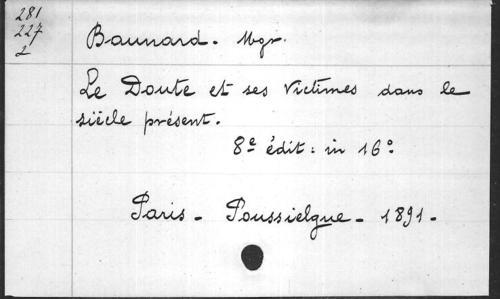 281
227
2
Baunard. Mgr.
Le Doute et ses Victimes dans le
siècle présent.
8e édit: in 16°
Paris - Poussielgue - 1891.